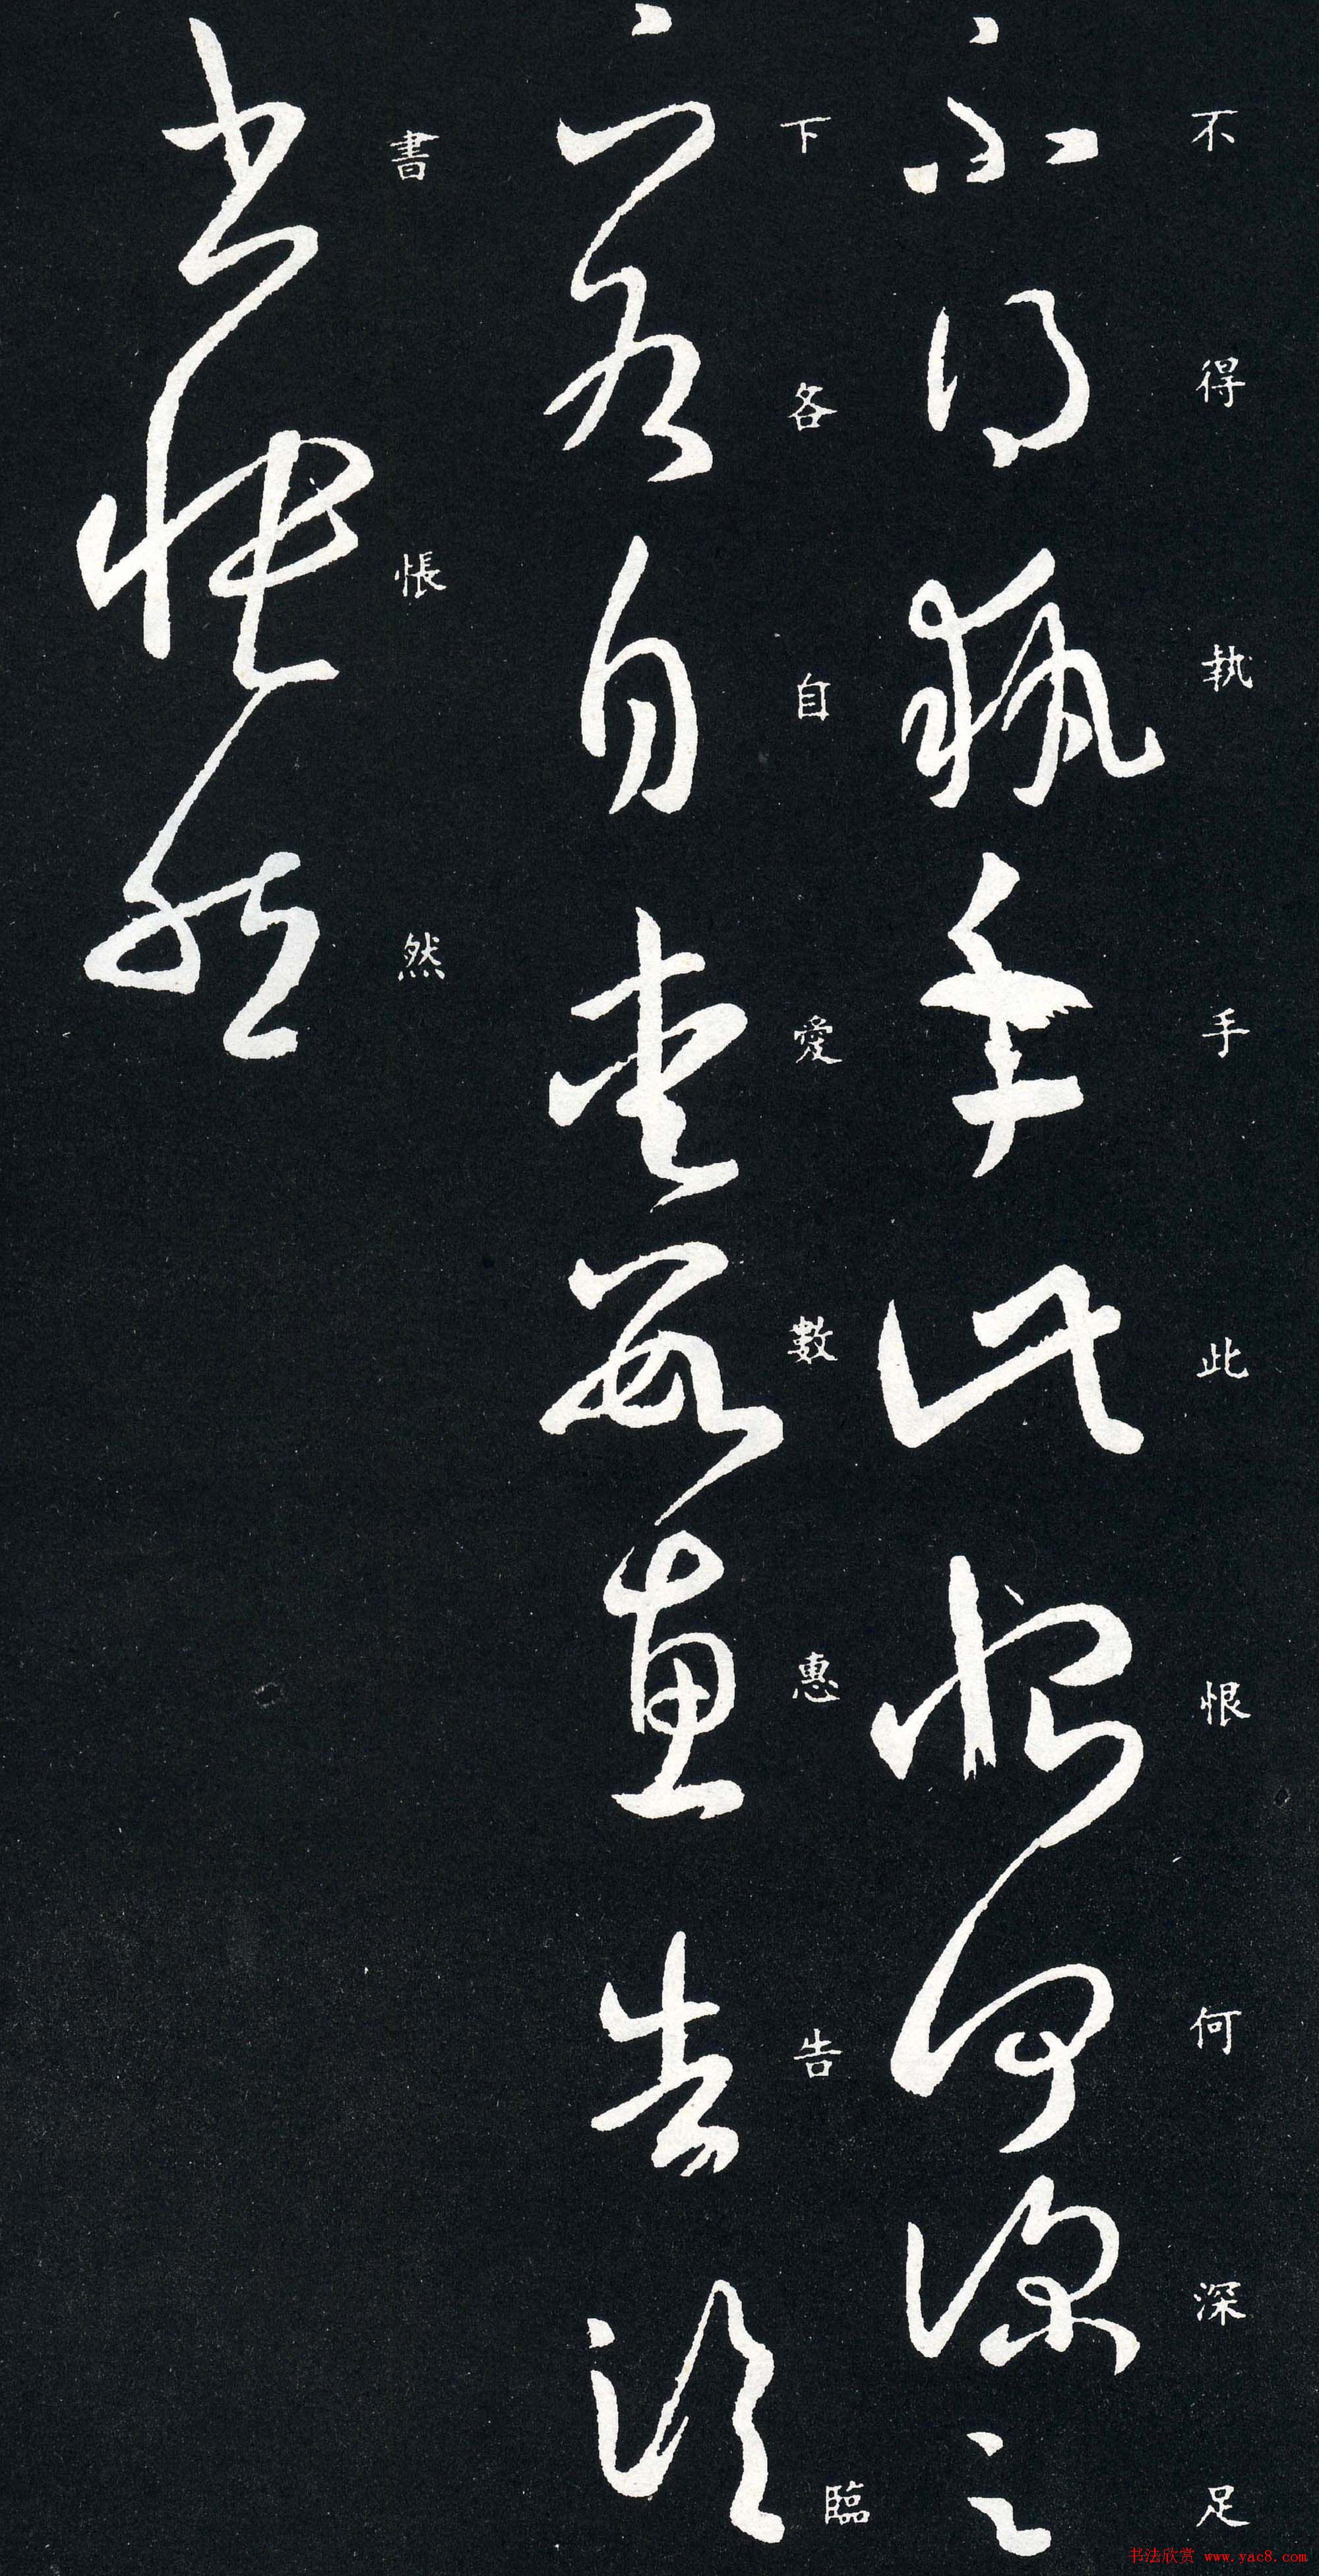 不得執手此恨何深足
下各自愛數惠告臨
書悵然
书法欣赏 www.yac8.com